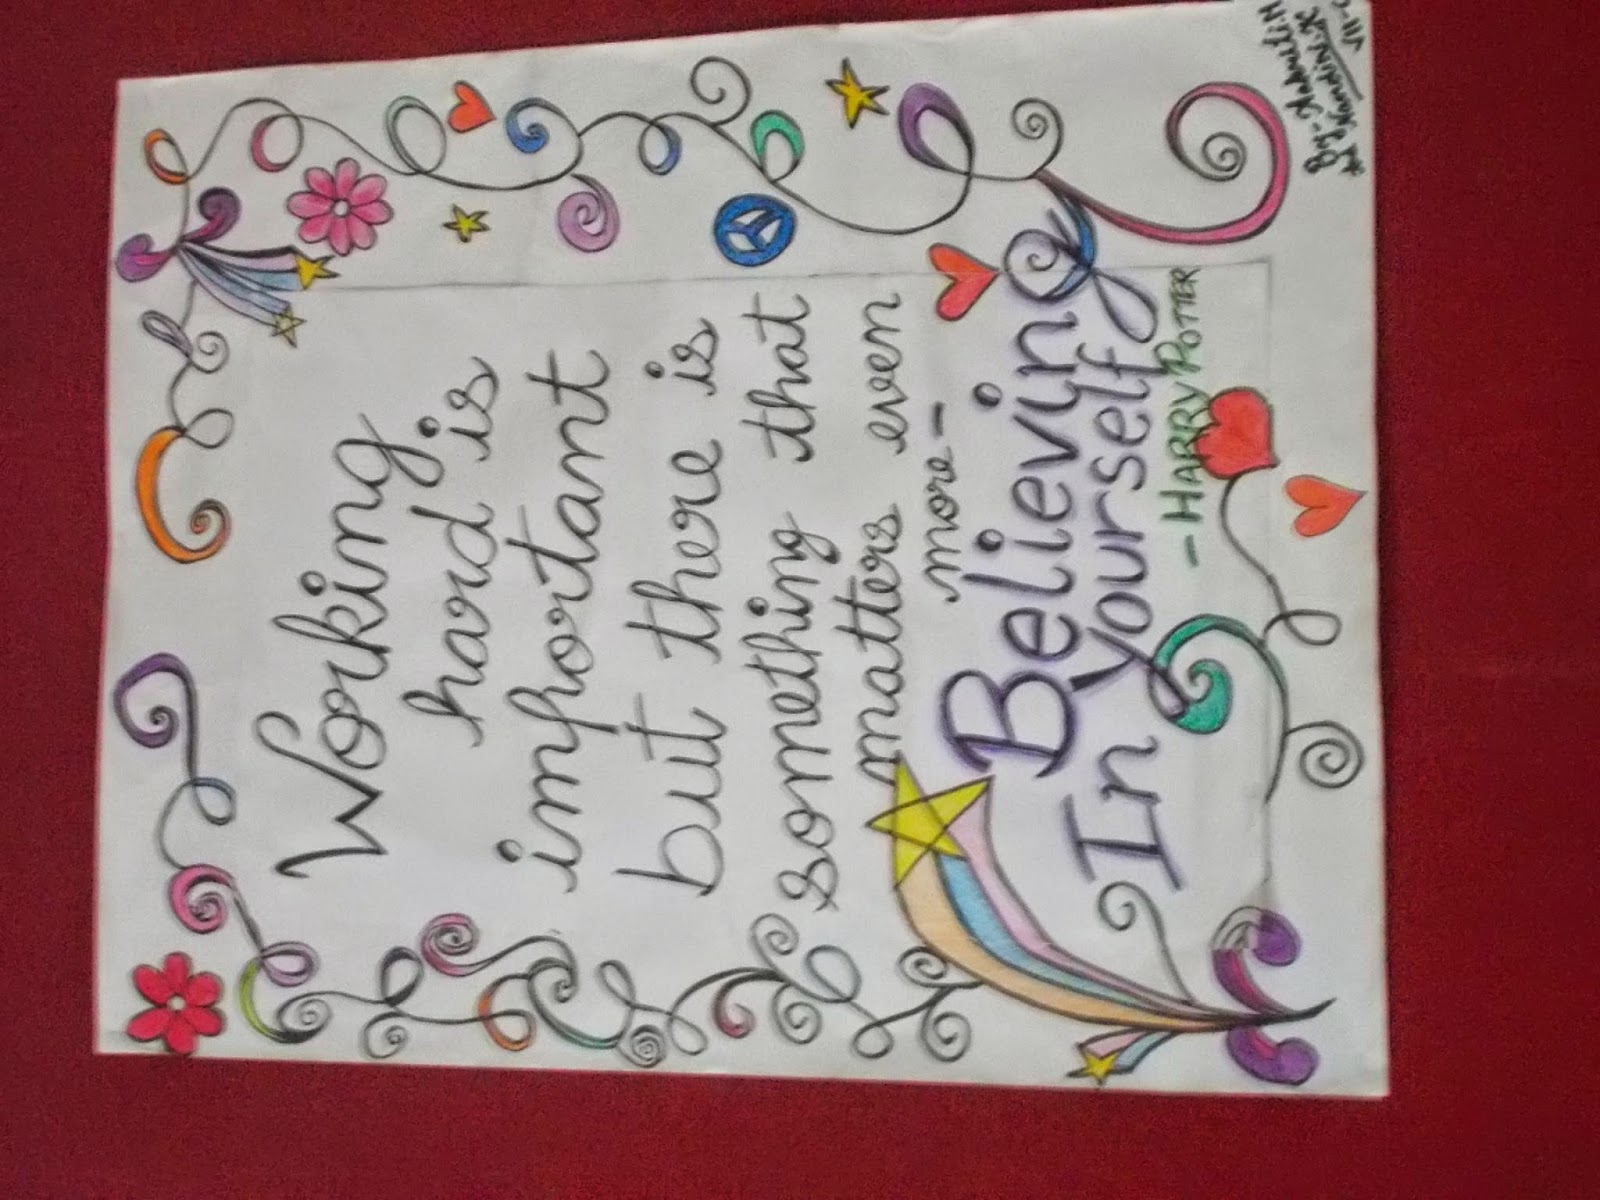 Working
hard is
important
but there is
something that
matters even
more-
Believing
In Yourself
- HARRY POTTER
By-